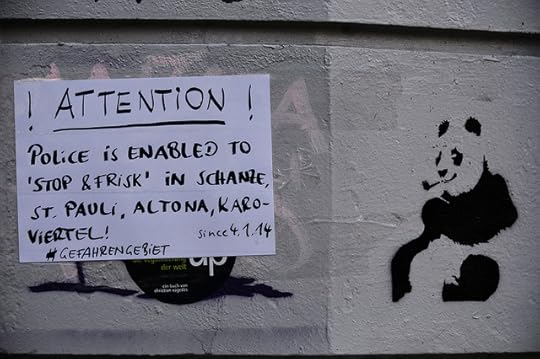 ! ATTENTION !
POLICE IS ENABLED TO
'STOP & FRISK' IN SCHANZE,
ST. PAULI, ALTONA, KARO-
VIERTEL! since 4.1.14
#GEFAHRENGEBIET
up
der welt
ein buch von